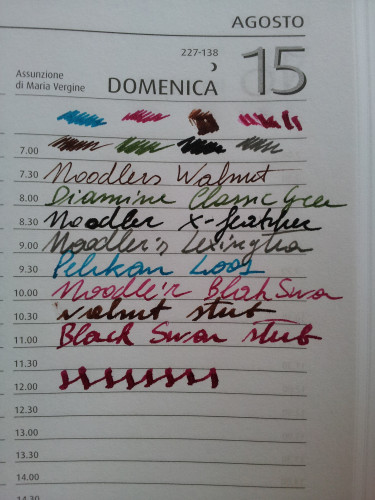 AGOSTO
227-138
15
Assunzione
di Maria Vergine
DOMENICA
7.00
7.30 Noodlers Walnut
8.00 Diamine Classic Green
8.30 Noodler X-feather
9.00 Noodler's Lexington
9.30 Pelikan
10.00 Noodler Blak Swan
10.30 walnut stub
11.00 Black Swan stub
11.30
12.00
12.30
13.00
13.30
14.00